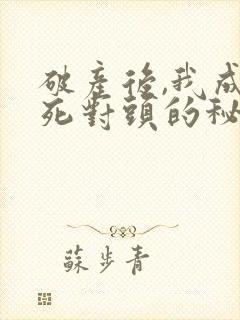 破產後,我成
死對頭的秘
蘇步青